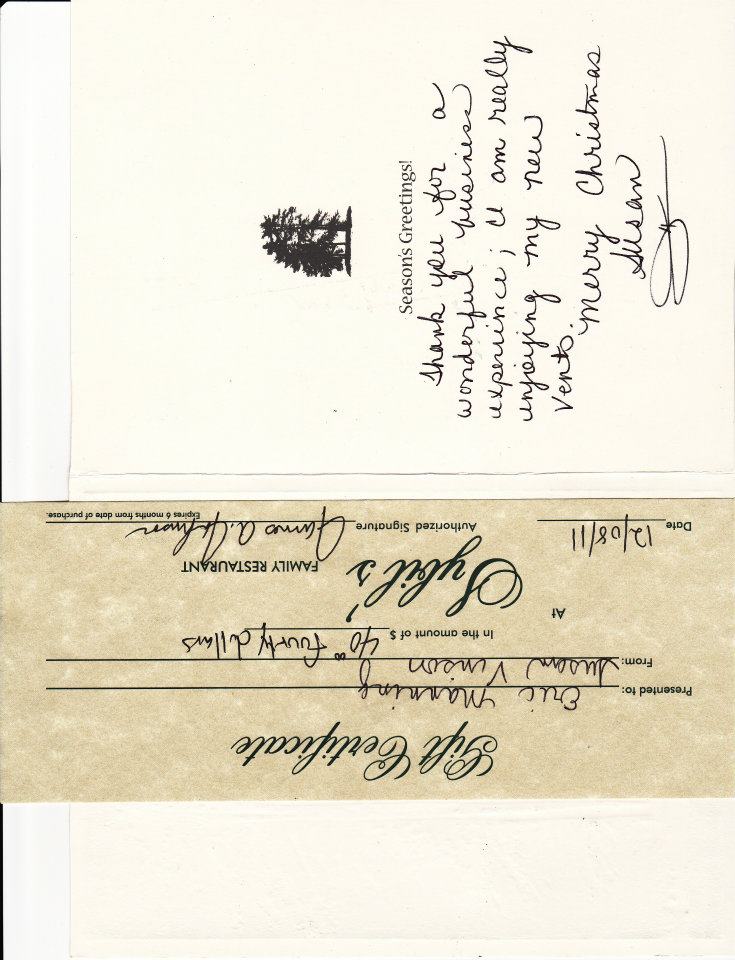 Season's Greetings!
Thank you for a
wonderful business
experience; I am really
enjoying my new
vents.
Merry Christmas
Susan
Gift Certificate
Presented to: Eric Manning
From: Susan Vinson
In the amount of $ 40.00 fourty dollars
At
Sybil's
FAMILY RESTAURANT
Date 12/08/11
Authorized Signature James A.
Expires 6 months from date of purchase.